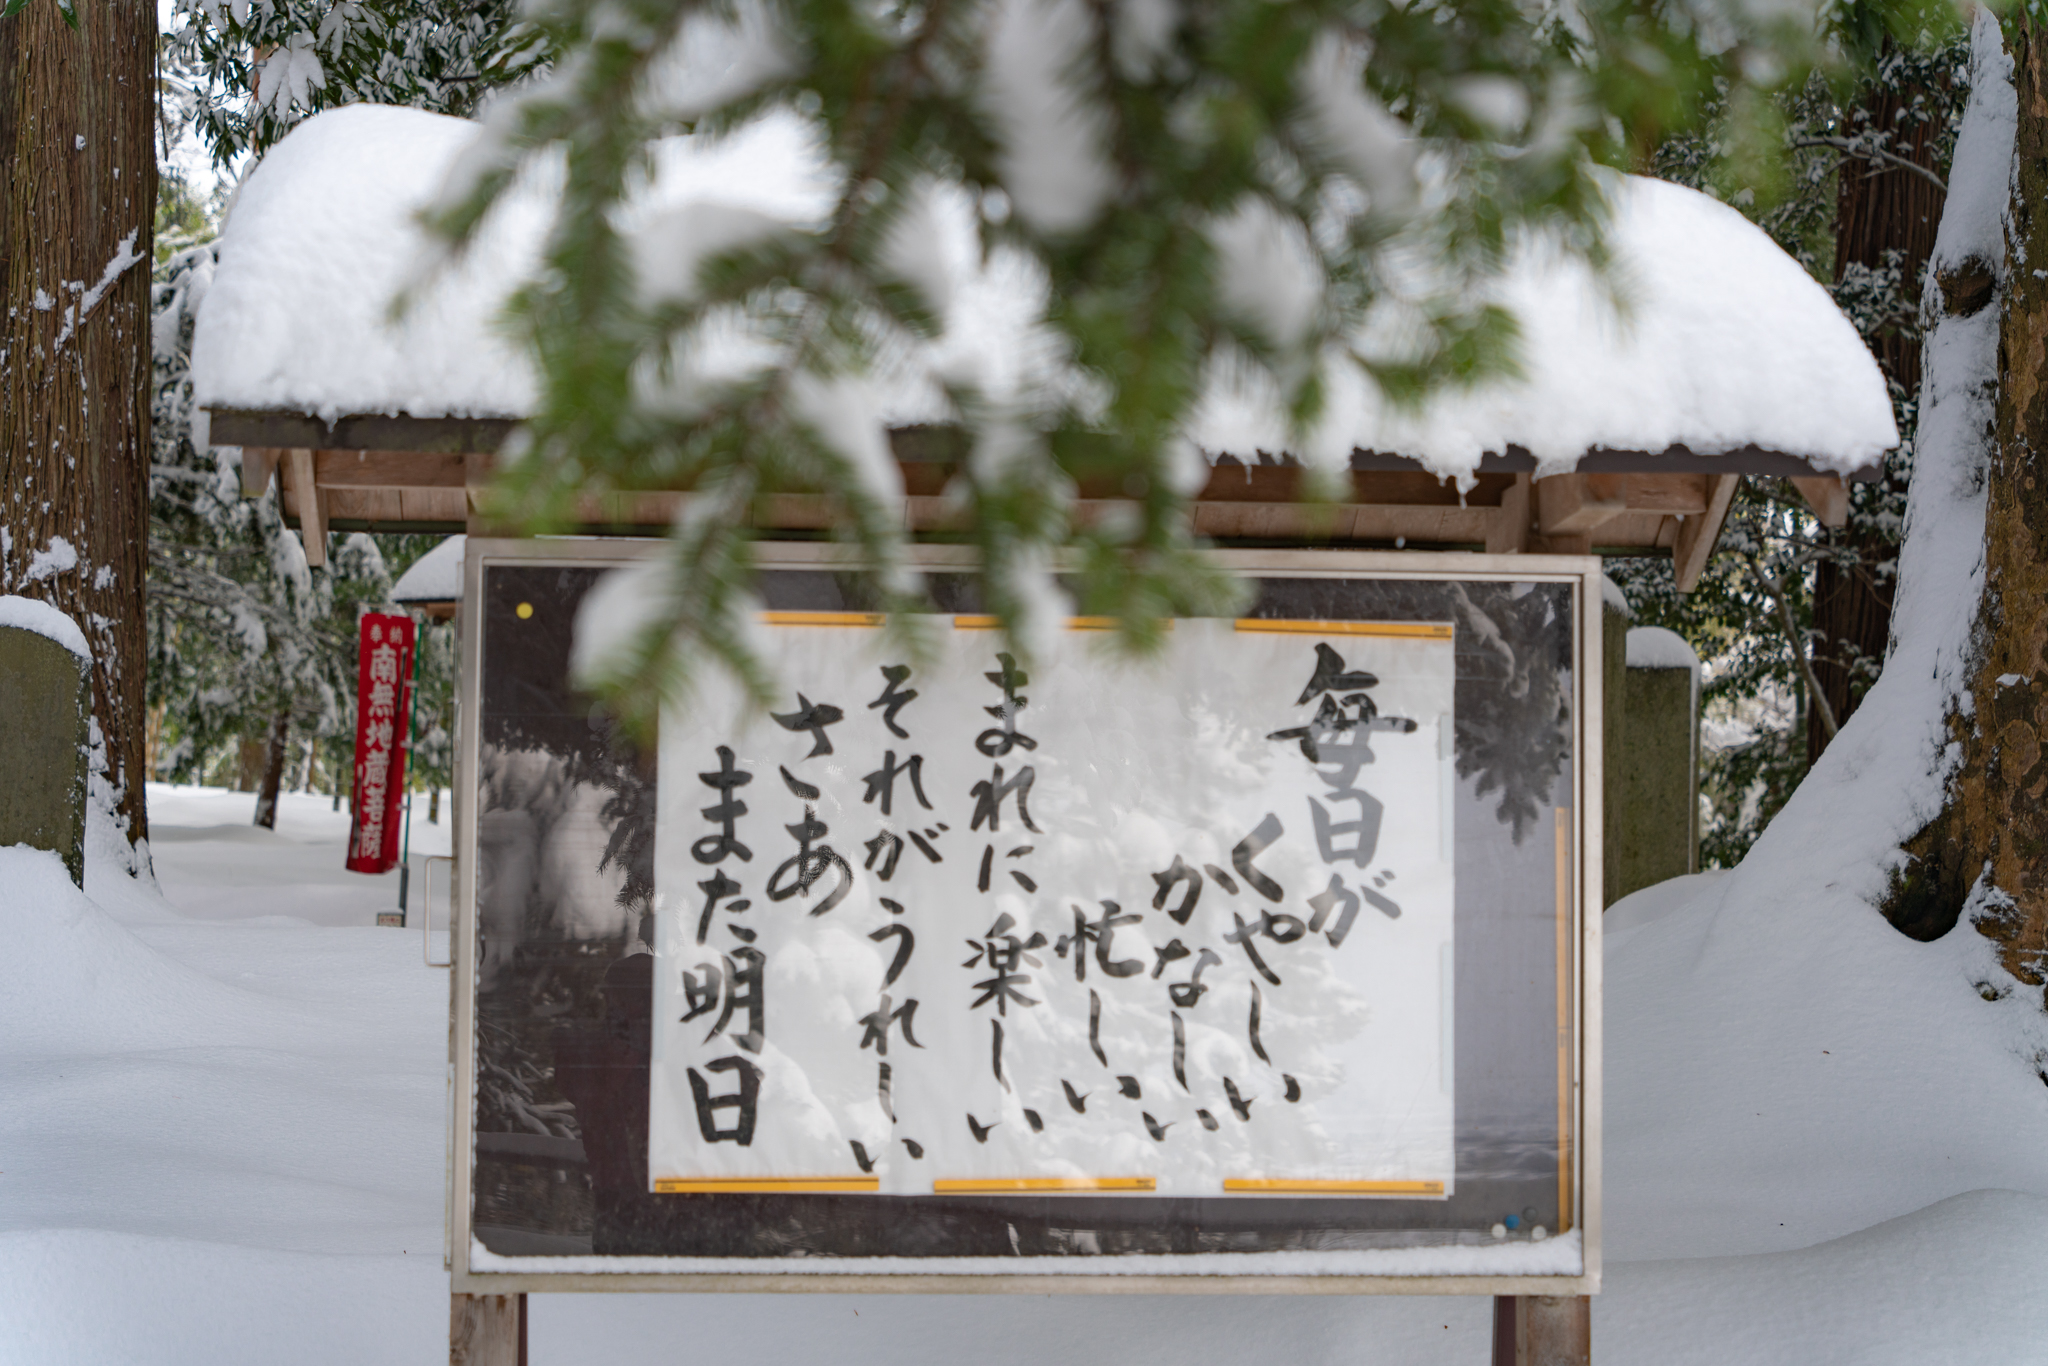 毎日が
くやしい
かなしい
忙しい
まれに楽しい
それがうれしい
さあ
また明日
奉納
南無地蔵菩薩